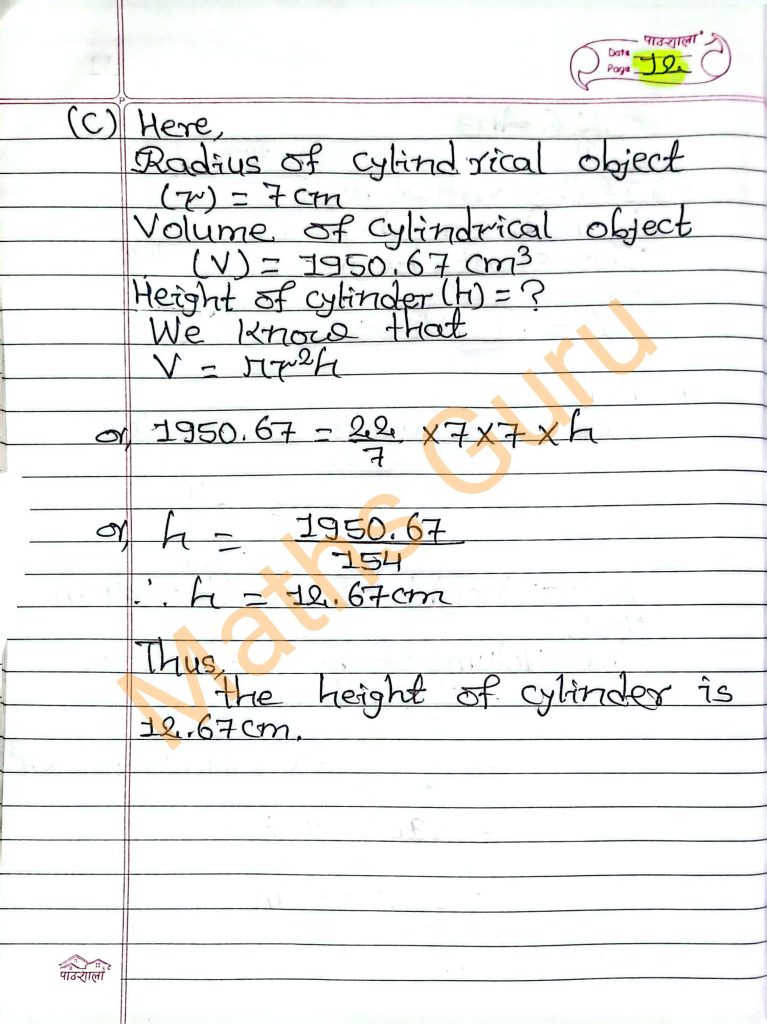 पाठशाला
Date
Page 12
(C) Here,
Radius of cylindrical object
(r) = 7 cm
Volume of cylindrical object
(V) = 1950.67 cm³
Height of cylinder (h) = ?
We know that
V = πr²h
or, 1950.67 = 22/7 × 7 × 7 × h
or, h = 1950.67/154
∴ h = 12.67 cm
Thus,
the height of cylinder is
12.67 cm.
Maths Guru
पाठशाला